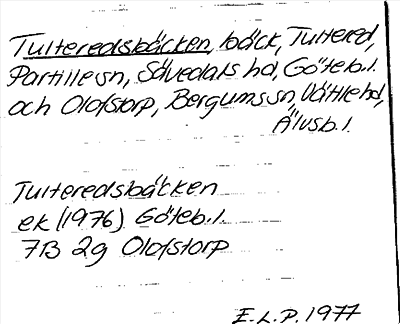 Tulteredsbäcken, bäck, Tultered,
Partille sn, Sävedals hd, Göteb. l.
och Olofstorp, Bergums sn, Vättle hd,
Älvsb. l.
Tulteredsbäcken
ek (1976) Göteb. l.
7B 2g Olofstorp
E. L. P. 1977